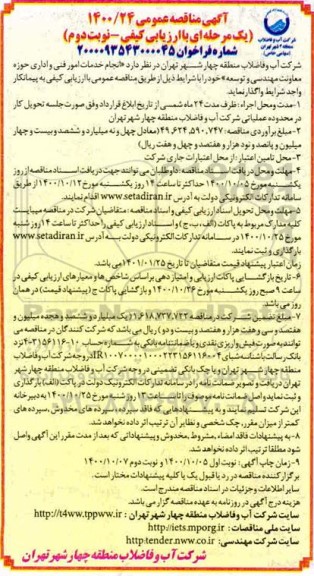 آگهی مناقصه عمومی ۱۴۰۰/۲۴
(یک مرحله ای با ارزیابی کیفی - نوبت دوم)
شماره فراخوان ۲۰۰۰۰۹۳۵۴۳۰۰۰۰۴۵
شرکت آب و فاضلاب
منطقه ۴ شهر تهران
(سهامی خاص)
شرکت آب و فاضلاب منطقه چهار شهر تهران در نظر دارد «انجام خدمات امور فنی و اداری حوزه
معاونت مهندسی و توسعه» خود را با شرایط ذیل از طریق مناقصه عمومی با ارزیابی کیفی به پیمانکار
واجد شرایط واگذار نماید.
۱-مدت و محل اجراء: ظرف مدت ۲۴ ماه شمسی از تاریخ ابلاغ قرارداد وفق صورت جلسه تحویل کار
در محدوده عملیاتی شرکت آب و فاضلاب منطقه چهار شهر تهران
۲-مبلغ برآوردی مناقصه: ۴۹,۶۲۴,۵۹۰,۷۴۷ (معادل چهل و نه میلیارد و ششصد و بیست و چهار
میلیون و پانصد و نود هزار و هفتصد و چهل و هفت ریال)
۳-محل تامین اعتبار: از محل اعتبارات جاری شرکت
۴-مهلت و محل دریافت اسناد مناقصه: داوطلبان می توانند جهت دریافت اسناد مناقصه از روز
یکشنبه مورخ ۱۴۰۰/۱۰/۰۵ حداکثر تا ساعت ۱۴ روز یکشنبه مورخ ۱۴۰۰/۱۰/۱۲ از طریق
سامانه تدارکات الکترونیکی دولت به آدرس www.setadiran.ir اقدام نمایند.
۵-مهلت و محل تحویل اسناد ارزیابی کیفی و اسناد مناقصه: متقاضیان شرکت در مناقصه میبایست
کلیه مدارک مربوط به پاکات (الف، ب، ج) و اسناد ارزیابی کیفی را حداکثر تا ساعت ۱۴ روز شنبه
مورخ ۱۴۰۰/۱۰/۲۵ در سامانه تدارکات الکترونیکی دولت به آدرس www.setadiran.ir
بارگذاری و ثبت نمایند.
زمان اعتبار پیشنهاد قیمت متقاضیان تا تاریخ ۱۴۰۱/۰۱/۲۵ می باشد.
۶-تاریخ بازگشایی پاکات ارزیابی و امتیاز دهی براساس شاخص ها و معیارهای ارزیابی کیفی در
ساعت ۹ صبح روز یکشنبه مورخ ۱۴۰۰/۱۰/۲۶ و بازگشایی پاکات ج (پیشنهاد قیمت) در همان
روز می باشد.
۷-مبلغ تضمین شرکت در مناقصه ۱,۶۱۸,۷۳۷,۷۲۲ (یک میلیارد و ششصد و هجده میلیون و
هفتصد و سی و هفت هزار و هفتصد و بیست و دو) ریال می باشد که شرکت کنندگان در مناقصه می
توانند به صورت فیش واریزی نقدی و یا ضمانتنامه بانکی به شماره حساب
بانک رسالت باشناسه شبای
منطقه چهار شهر تهران و یا چک بانکی تضمینی در وجه شرکت آب و فاضلاب منطقه چهار شهر
تهران دریافت و تصویر ضمانت نامه را در سامانه تدارکات الکترونیک دولت در پاکت (الف) بارگذاری
و ثبت نماید و اصل ضمانت نامه موصوف را تا ساعت ۱۴ روز شنبه مورخ ۱۴۰۰/۱۰/۲۵ به دبیرخانه
این شرکت تسلیم نمایند و به پیشنهادهایی که فاقد سپرده، سپرده های مخدوش، سپرده های
کمتر از میزان مقرر، چک شخصی و نظایر آن ترتیب اثر داده نخواهد شد.
۸-به پیشنهادات فاقد امضاء، مشروط، مخدوش و پیشنهاداتی که بعد از مدت مقرر این آگهی واصل
شود مطلقا ترتیب اثر داده نخواهد شد.
۹-زمان چاپ آگهی: نوبت اول ۱۴۰۰/۱۰/۰۵ و نوبت دوم ۱۴۰۰/۱۰/۰۷
برگزار کننده مناقصه در رد یا قبول یک یا کلیه پیشنهادات مختار است.
سایر اطلاعات و جزئیات در اسناد مناقصه مندرج است.
هزینه درج آگهی در روزنامه به عهده مناقصه گزار می باشد.
سایت شرکت آب و فاضلاب منطقه چهار شهر تهران : http://t4ww.tppww.ir
سایت ملی مناقصات: http://iets.mporg.ir
سایت شرکت مهندسی: http:tender.nww.co.ir
شرکت آب و فاضلاب منطقه چهار شهر تهران